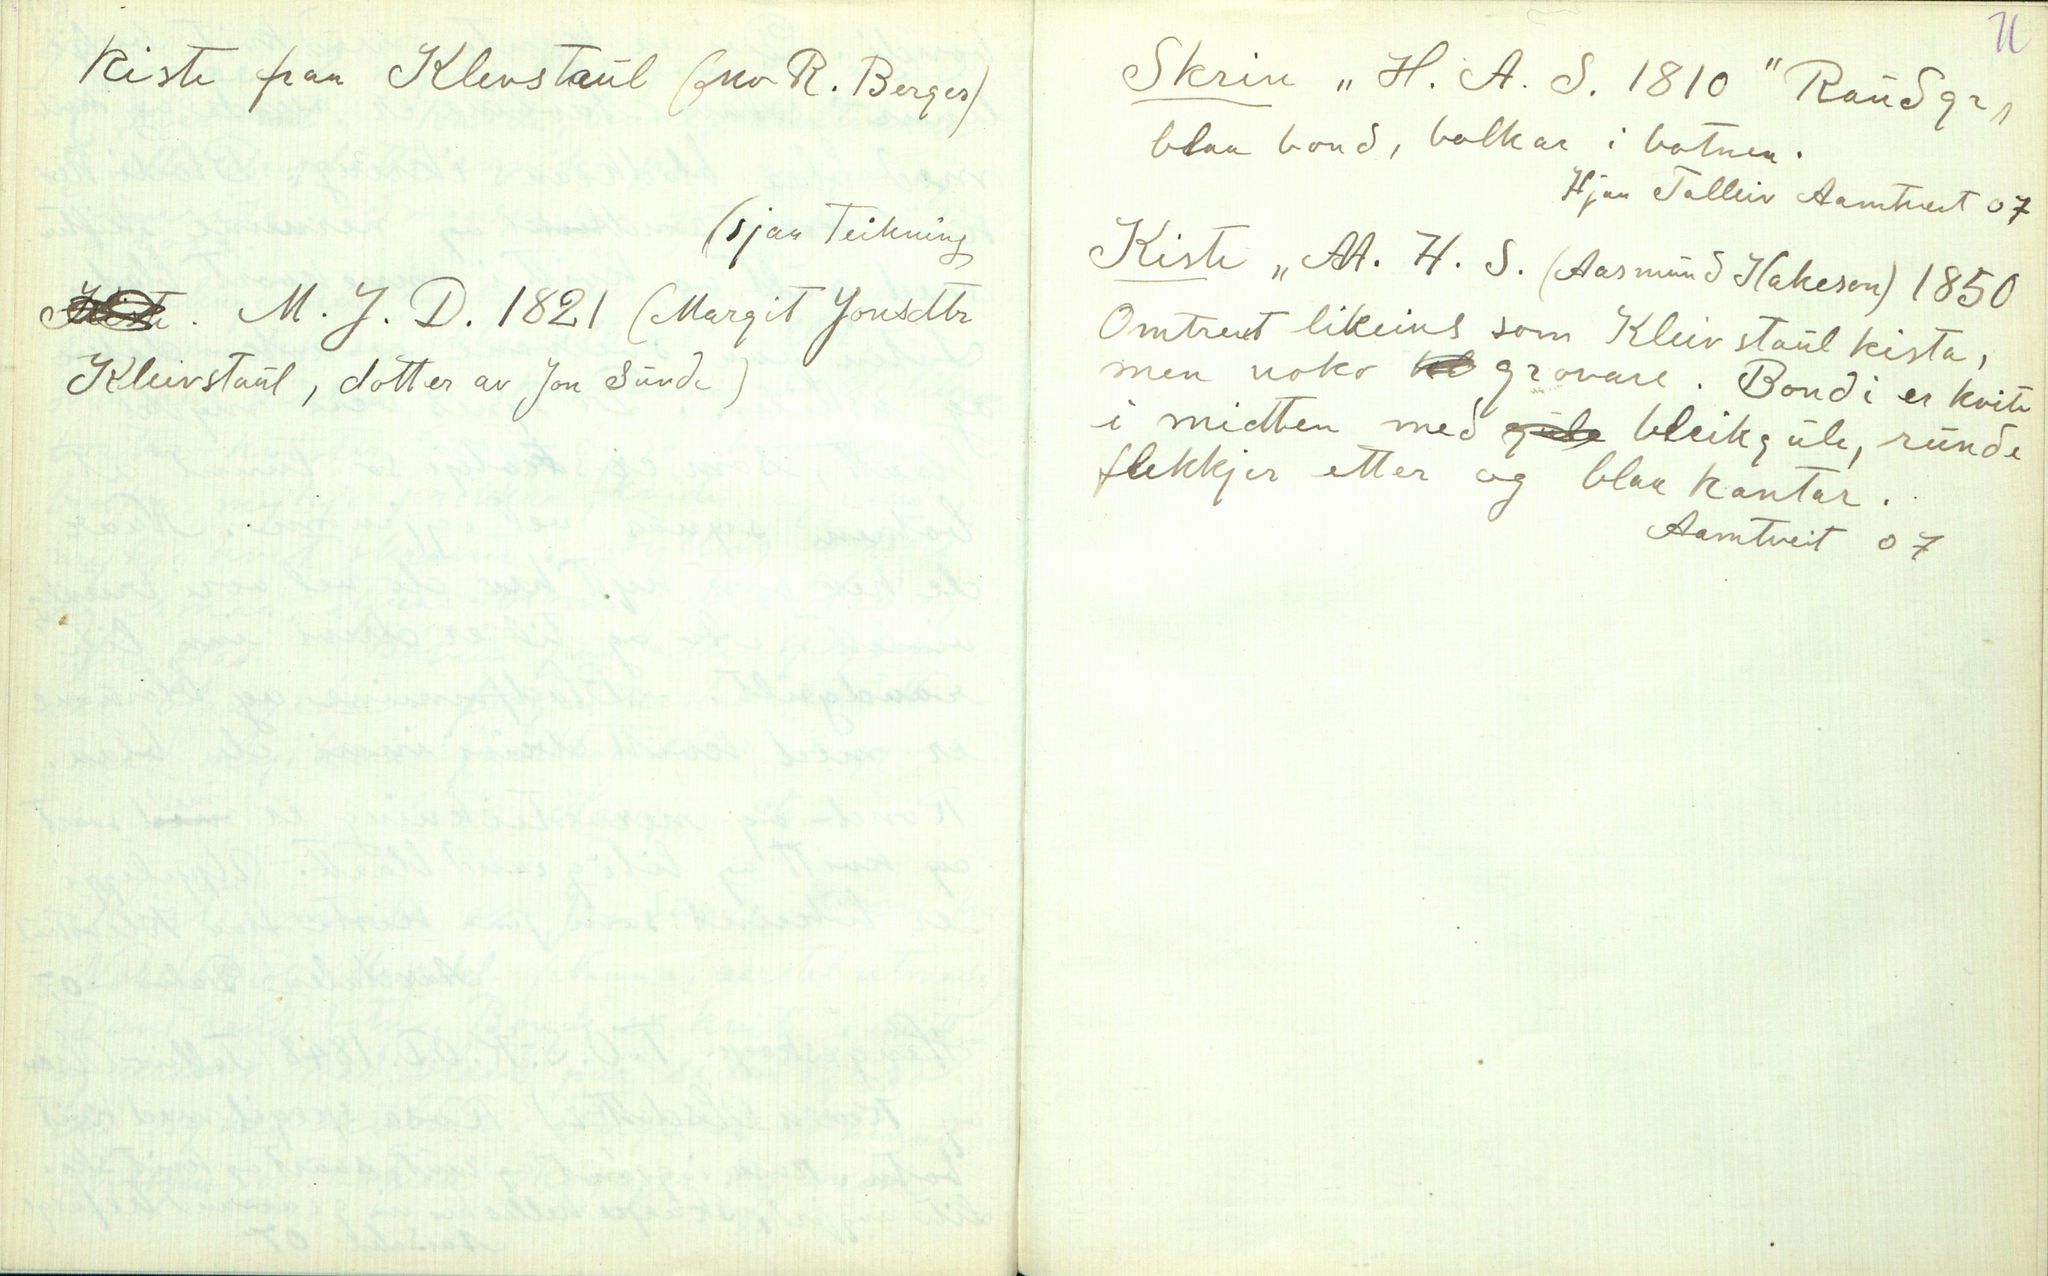 Kiste fraa Klevstaul (hos R. Berges)
(sjaa Teikning
Kiste. M. J. D. 1821 (Margit Jonsdtr
Kleivstaul, dotter av Jon Sunde)
Skrin „H. A. S. 1810" Raudgr,
blaa bond, balkar i botnen.
Hjaa Talleiv Aamtveit 07
Kiste „A. H. S. (Aasmund Hakeson) 1850
Omtrent likeins som Kleivstaulkista,
men noko grovare. Bondi er kvite
i midtten med gule bleikgule, runde
flekkjer etter og blaa kantar.
Aamtveit 07